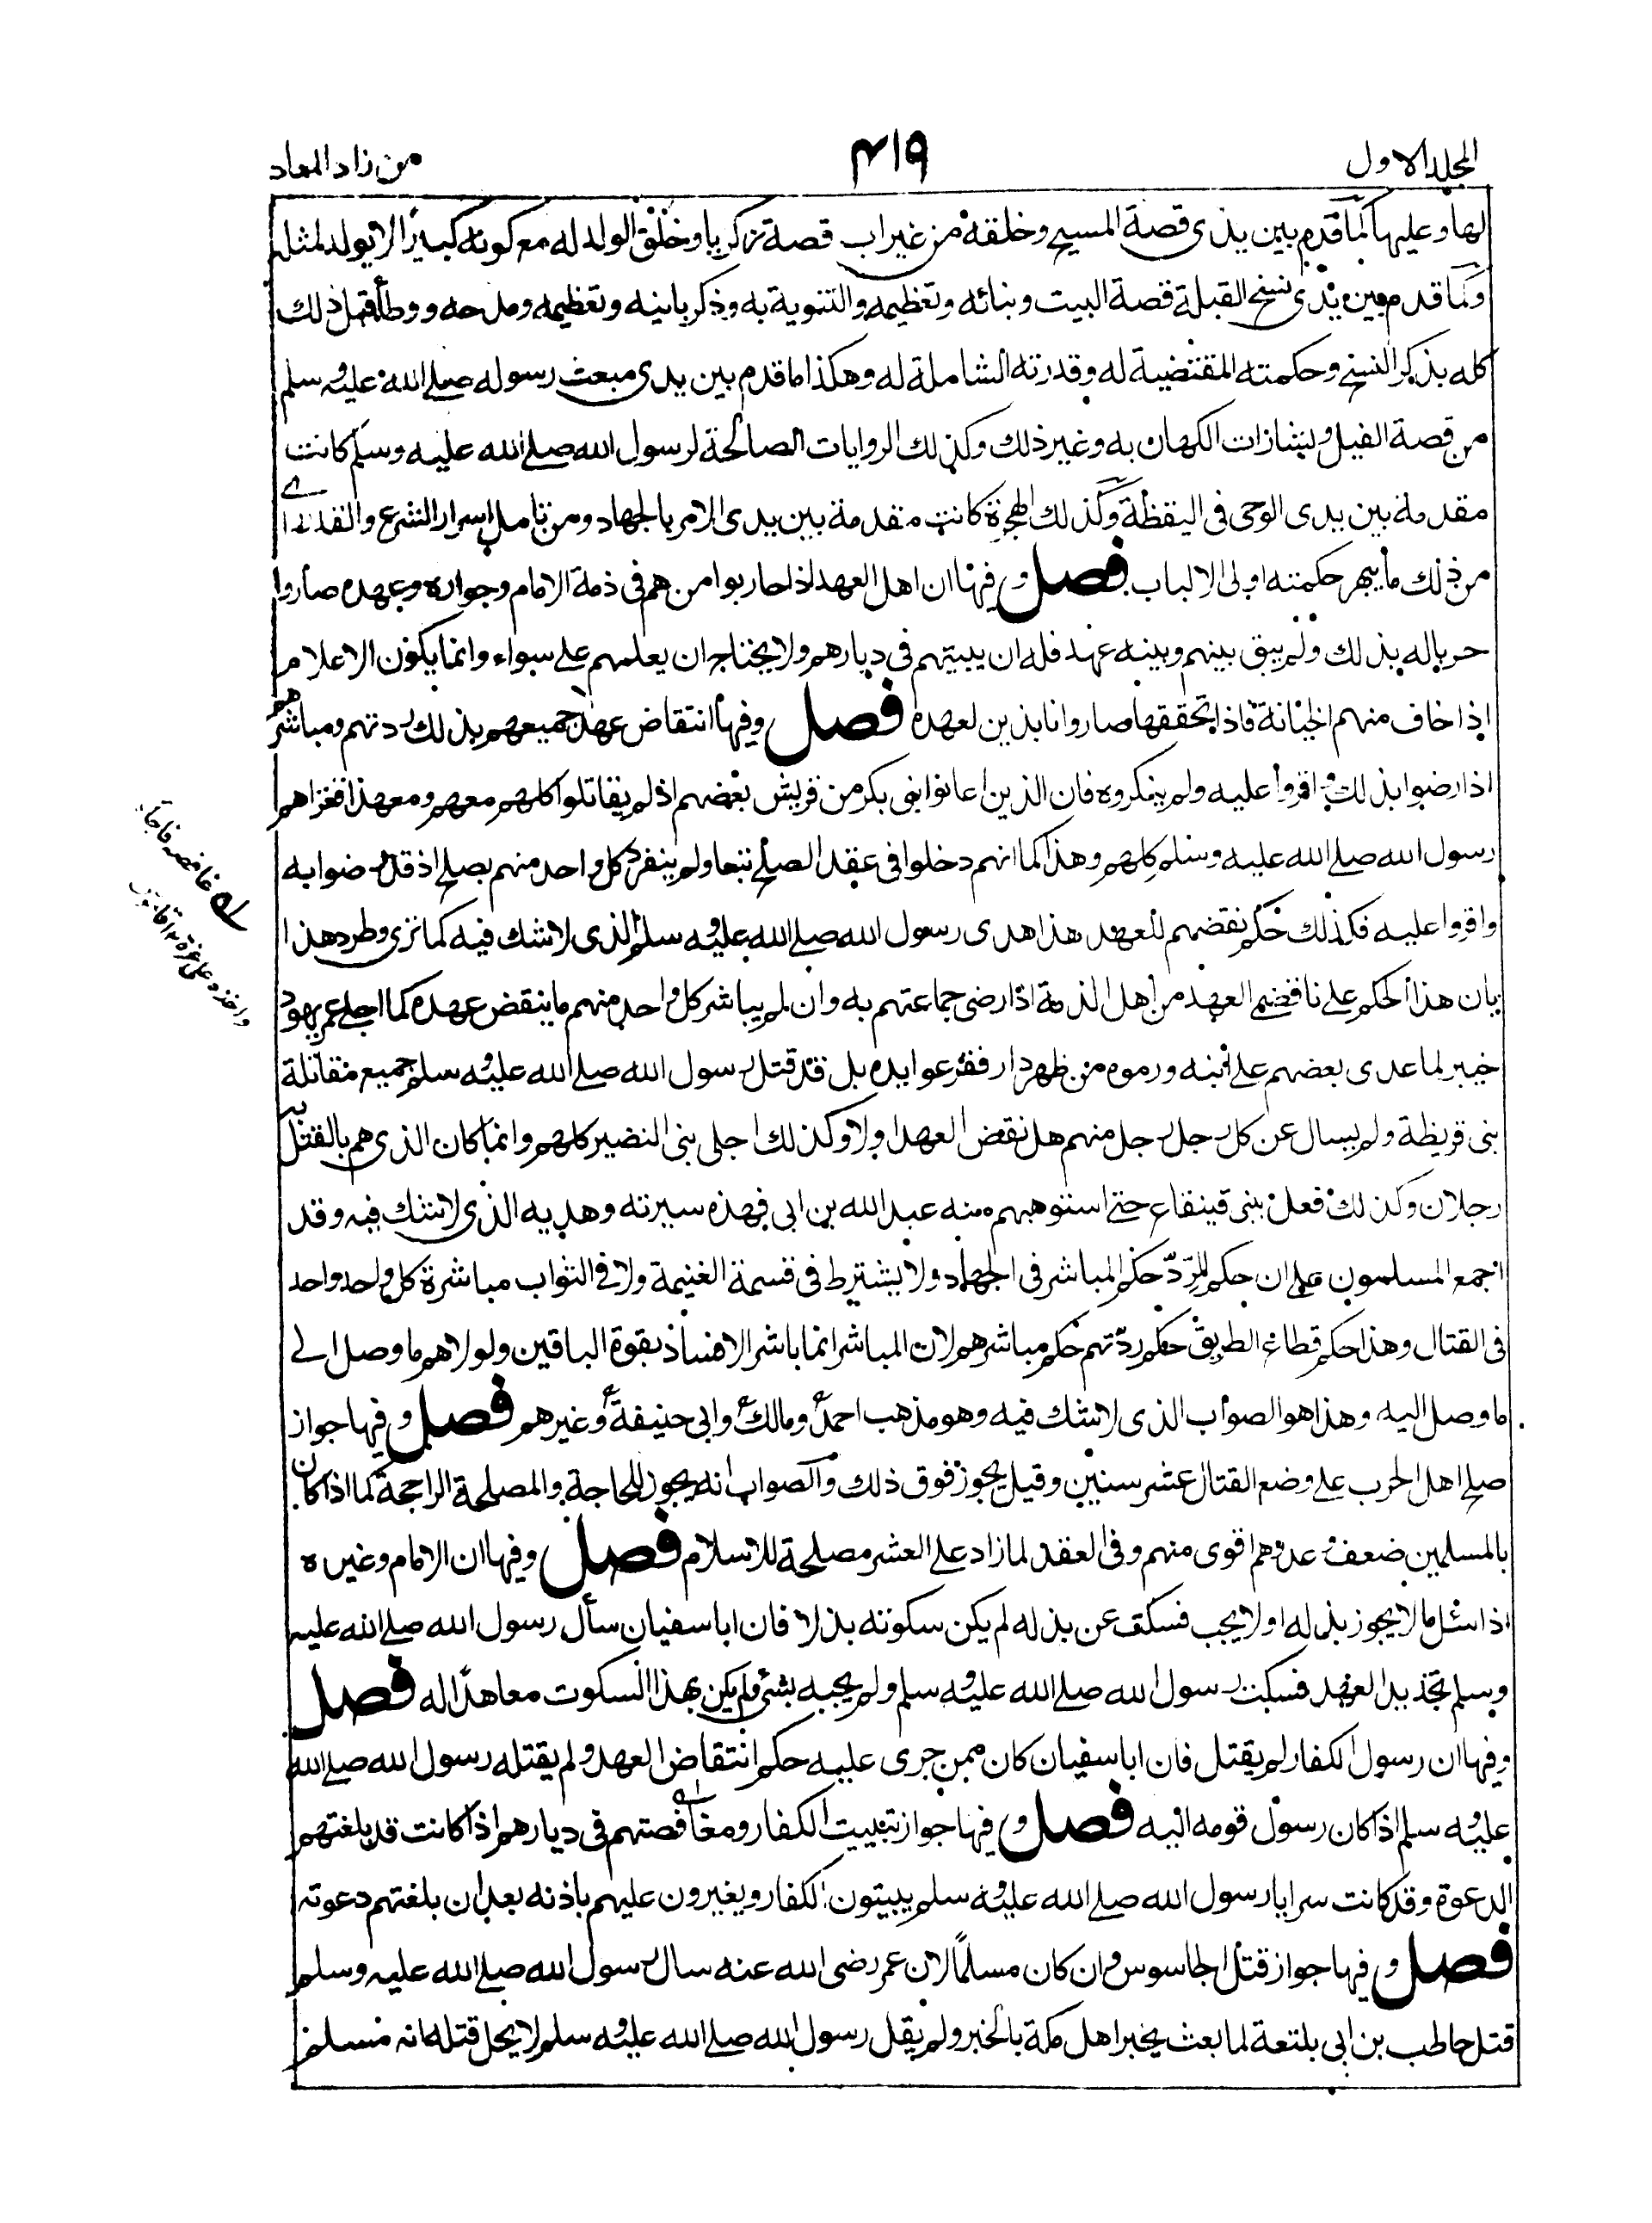 المجلد الاول
۴۱۹
من زاد المعاد
لها وعليها كما قدم بين يدى قصة المسيح وخلقه من غير اب قصة زكريا وخلق الولد له مع كونه كبيرا لا يولد لمثله
وكما قدم بين يدى نسخ القبلة قصة البيت وبنائه وتعظيمه والتنويه به وذكر بانيه وتعظيمه ومدحه ووطأ قبل ذلك
كله بذكر النسخ وحكمته المقتضية له وقدرته الشاملة له وهكذا ما قدم بين يدى مبعث رسوله صلے الله عليه وسلم
من قصة الفيل وبشارات الكهان به وغير ذلك وكذلك الروايات الصالحة لرسول الله صلے الله عليه وسلم كانت
مقدمة بين يدى الوحى فى اليقظة وكذلك الهجرة كانت مقدمة بين يدى الامر بالجهاد ومن تامل اسرار الشرع والقدر راے
من ذلك ما يبهر حكمته اولى الالباب فصل وفيها ان اهل العهد اذا حاربوا من هم فى ذمة الامام وجواره وعهده صاروا
حربا له بذلك ولم يبق بينهم وبينه عهد فله ان يبيتهم فى ديارهم ولا يحتاج ان يعلمهم على سواء وانما يكون الاعلام
اذا خاف منهم الخيانة فاذا تحققها صاروا نابذين لعهده فصل وفيها انتقاض عهد جميعهم بذلك ردتهم ومباشرهم
اذا رضوا بذلك واقروا عليه ولم ينكروه فان الذين اعانوا بنى بكر من قريش بعضهم اذ لم يقاتلوا كلهم معهم ومع هذا فغزاهم
رسول الله صلے الله عليه وسلم كلهم وهذا كما انهم دخلوا فى عقد الصلح تبعا ولم ينفرد كل واحد منهم بصلح اذ قد رضوا به
واقروا عليه فكذلك حكم نقضهم للعهد هذا هدى رسول الله صلے الله عليه وسلم الذى لا شك فيه كما ترى وطرد هذا
يان هذا الحكم على ناقضى العهد من اهل الذمة اذا رضى جماعتهم به وان لم يباشر كل واحد منهم ما ينقض عهده كما اجلے عمر يهود
خيبر لما عدى بعضهم على ابنه ورموه من ظهر دار ففدعوا يده بل قد قتل رسول الله صلے الله عليه وسلم جميع مقاتلة
بنى قريظة ولم يسال عن كل رجل رجل منهم هل نقض العهد او لا وكذلك اجلى بنى النضير كلهم وانما كان الذى هم بالقتل به
رجلان وكذلك فعل ببنى قينقاع حتى استوهبهم منه عبد الله بن ابى فهذه سيرته وهديه الذى لا شك فيه وقد
اجمع المسلمون على ان حكم الردّ حكم المباشر فى الجهاد ولا يشترط فى قسمة الغنيمة ولا فے الثواب مباشرة كل واحد واحد
فى القتال وهذا حكم قطاع الطريق حكم ردّتهم حكم مباشرهم لان المباشر انما باشر الافساد بقوة الباقين ولولاهم ما وصل الے
ما وصل اليه وهذا هو الصواب الذى لا شك فيه وهو مذهب احمد ومالك وابى حنيفة وغيرهم فصل وفيها جواز
صلح اهل الحرب على وضع القتال عشر سنين وقيل يجوز فوق ذلك والصواب انه يجوز للحاجة والمصلحة الراجحة كما اذا كان
بالمسلمين ضعف وعدوهم اقوى منهم وفى العقد لما زاد على العشر مصلحة للاسلام فصل وفيها ان الامام وغيره
اذا سئل ما لا يجوز بذله او لا يجب فسكت عن بذله لم يكن سكوته بذلا فان ابا سفيان سأل رسول الله صلے الله عليه
وسلم تجديد العهد فسكت رسول الله صلے الله عليه وسلم ولم يجبه بشئ فلم يكن بهذا السكوت معاهدا له فصل
وفيها ان رسول الكفار لم يقتل فان ابا سفيان كان ممن جرى عليه حكم انتقاض العهد ولم يقتله رسول الله صلے الله
عليه وسلم اذ كان رسول قومه اليه فصل وفيها جواز تبييت الكفار ومغافصتهم فى ديارهم اذا كانت قد بلغتهم
الدعوة وقد كانت سرايا رسول الله صلے الله عليه وسلم يبيتون الكفار ويغيرون عليهم باذنه بعد ان بلغتهم دعوته
فصل وفيها جواز قتل الجاسوس وان كان مسلمًا لان عمر رضى الله عنه سال رسول الله صلے الله عليه وسلم
قتل حاطب بن ابى بلتعة لما بعث يخبر اهل مكة بالخبر ولم يقل رسول الله صلے الله عليه وسلم لا يحل قتله انه مسلم
له غافصه فاجاه
واخذه على غرة ۱۲ قاموس